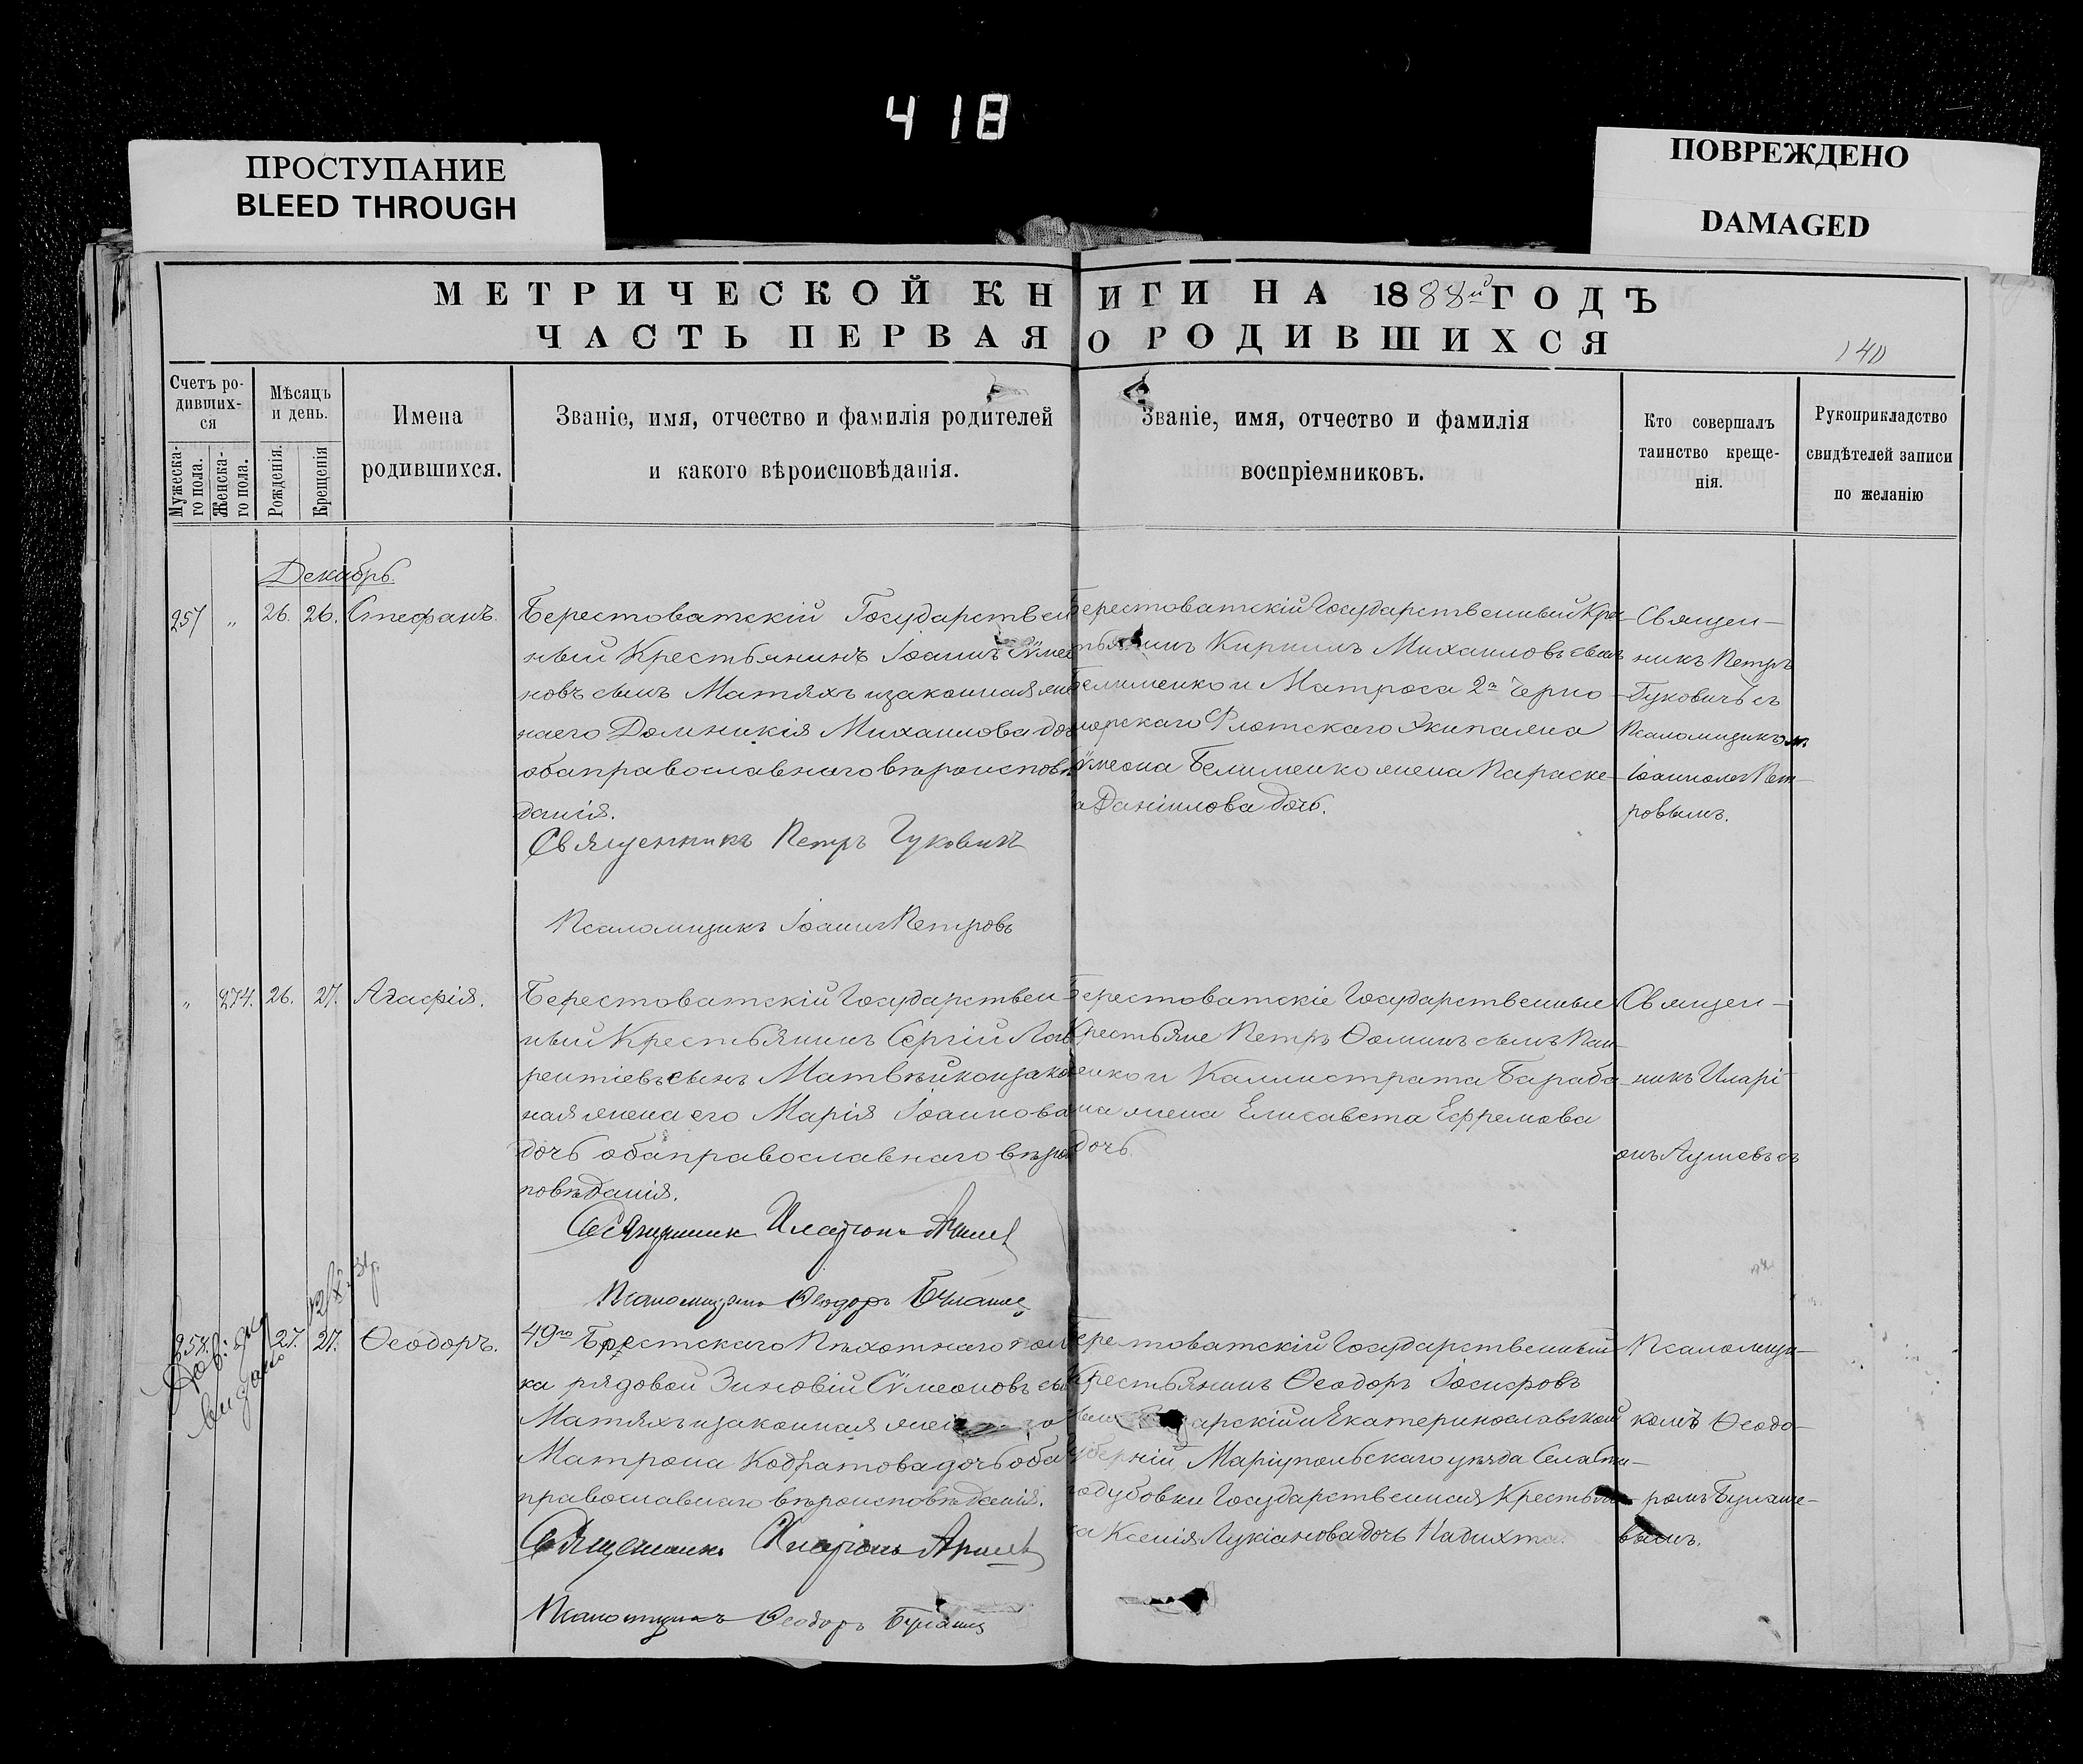 418
ПРОСТУПАНИЕ
BLEED THROUGH
ПОВРЕЖДЕНО
DAMAGED
МЕТРИЧЕСКОЙ КНИГИ НА 1888й ГОДЪ
ЧАСТЬ ПЕРВАЯ О РОДИВШИХСЯ
Счетъ ро-
дивших-
ся
Мужеска-
го пола.
Женска-
го пола.
Мѣсяцъ
и день.
Рожденія.
Крещенія
Имена
родившихся.
Званіе, имя, отчество и фамилія родителей
и какого вѣроисповѣданія.
Званіе, имя, отчество и фамилія
воспріемниковъ.
Кто совершалъ
таинство креще-
нія.
Рукоприкладство
свидѣтелей записи
по желанію
Декабрь.
257 „ 26. 26. Стефанъ.
Берестоватскій Государствен
ный Крестьянинъ Іоаннъ Сѵмео
новъ сынъ Матяхъ и законная же
на его Домникія Михаилова дочь
оба православнаго вѣроисповѣ
данія.
Священникъ Петръ Гуковичъ
Псаломщикъ Іоаннъ Петровъ
Берестоватскій Государственный Кре
стьянинъ Кириллъ Михаиловъ сынъ
Белименко и Матроса 2го Черно
морскаго Флотскаго Экипажа
Сѵмеона Белименко жена Параске
а Даніилова дочь.
Священ-
никъ Петръ
Гуковичъ съ
Псаломщикомъ
Іоанномъ Пет-
ровымъ.
„ 274. 26. 27. Агафія.
Берестоватскій Государствен
ный Крестьянинъ Сергій Лав
рентіевъ сынъ Матвѣйко и закон
ная жена его Марія Іоаннова
дочь оба православнаго вѣро
повѣданія.
Священникъ Иларіонъ
Псаломщикъ Ѳеодоръ
Берестоватскіе Государственные
Крестьяне Петръ Ѳоминъ сынъ Пан
ченко и Каллистрата Бараба
на жена Елисавета Ефремова
дочь.
Священ-
никъ Иларі
онъ съ
258. 27. 27. Ѳеодоръ.
выдано
49го Брестскаго Пѣхотнаго пол
ка рядовой Зиновій Сѵмеоновъ сы
Матяхъ и законная жена его
Матрона Кодратова дочь оба
православнаго вѣроисповѣданія.
Священникъ Иларіонъ
Псаломщикъ Ѳеодоръ
Берестоватскій Государственный
Крестьянинъ Ѳеодоръ Іосифовъ
арскій и Екатеринославской
губерній Маріупольскаго уѣзда Села Ста
родубовки Государственная Крестьян
ка Ксенія Лукіанова дочь
Псаломщи-
комъ Ѳеодо-
ромъ
вымъ.